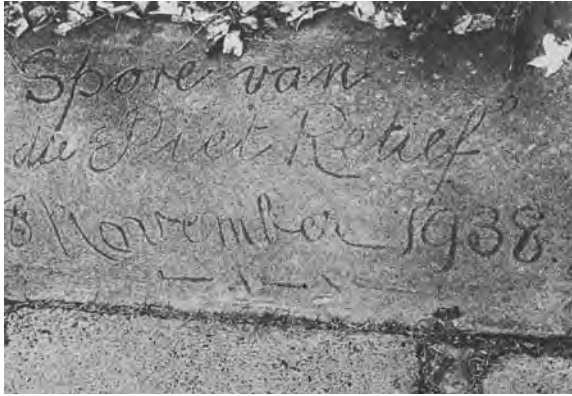 Spore van
die "Piet Retief"
8 November 1938.